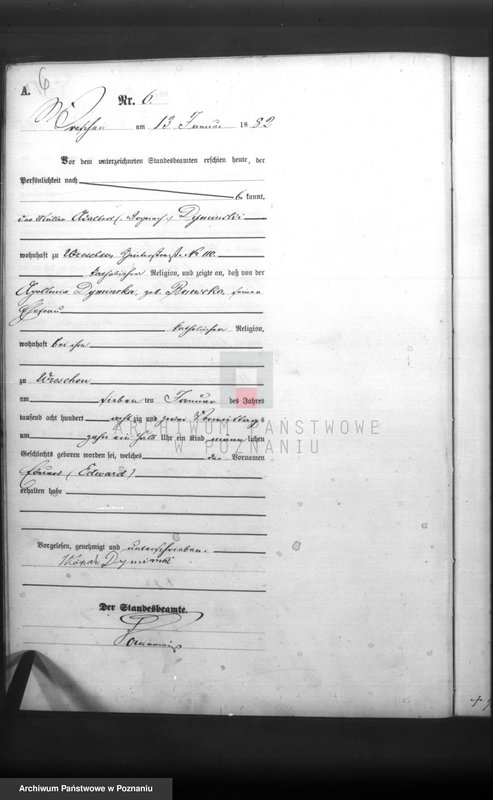 6
A.
Nr. 6.
Wreschen am 13 Januar 1882
Vor dem unterzeichneten Standesbeamten erschien heute, der
Persönlichkeit nach
be kannt,
der Müller Adalbert
wohnhaft zu Wreschen No 110.
katholischer Religion, und zeigte an, daß von der
Apollonia Dyminska, geb. seiner
Ehefrau
katholischer Religion,
wohnhaft bei ihm
zu Wreschen
am sieben ten Januar des Jahres
tausend acht hundert acht zig und zwei Vormittags
um zehn ein halb Uhr ein Kind männ lichen
Geschlechts geboren worden sei, welches den Vornamen
Eduard (Edward)
erhalten habe
Vorgelesen, genehmigt und unterschrieben.
Dyminski
Der Standesbeamte.
ARCHIWUM PAŃSTWOWE
W POZNANIU
Archiwum Państwowe w Poznaniu